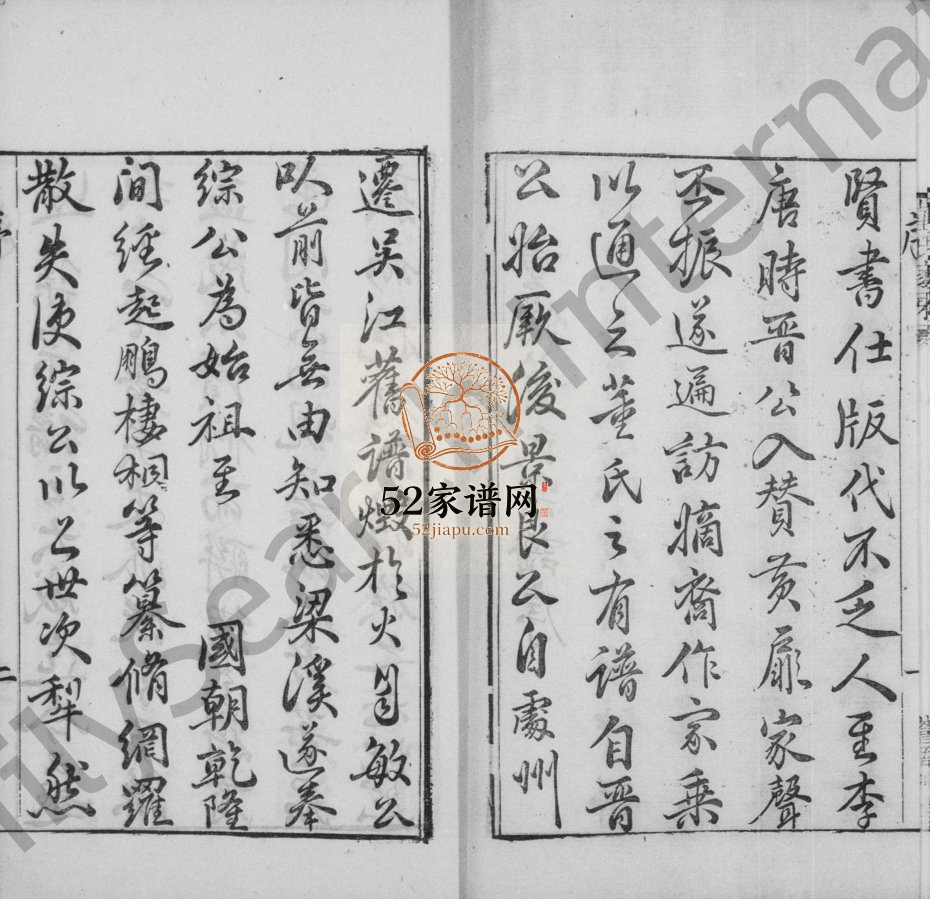 賢書仕版代不乏人至李
唐時晋公入賛黄扉家聲
丕振遂遍訪嫡裔作家乗
以通之董氏之有譜自晋
公始厥後景良公自處州
遷吴江舊譜燬於火自敏公
以前皆無由知悉梁溪遂奉
綜公為始祖至 國朝乾隆
間經起鵬棲桐等纂脩網羅
散失使綜公以上世次犁然
序
一
二
52家谱网
52jiapu.com